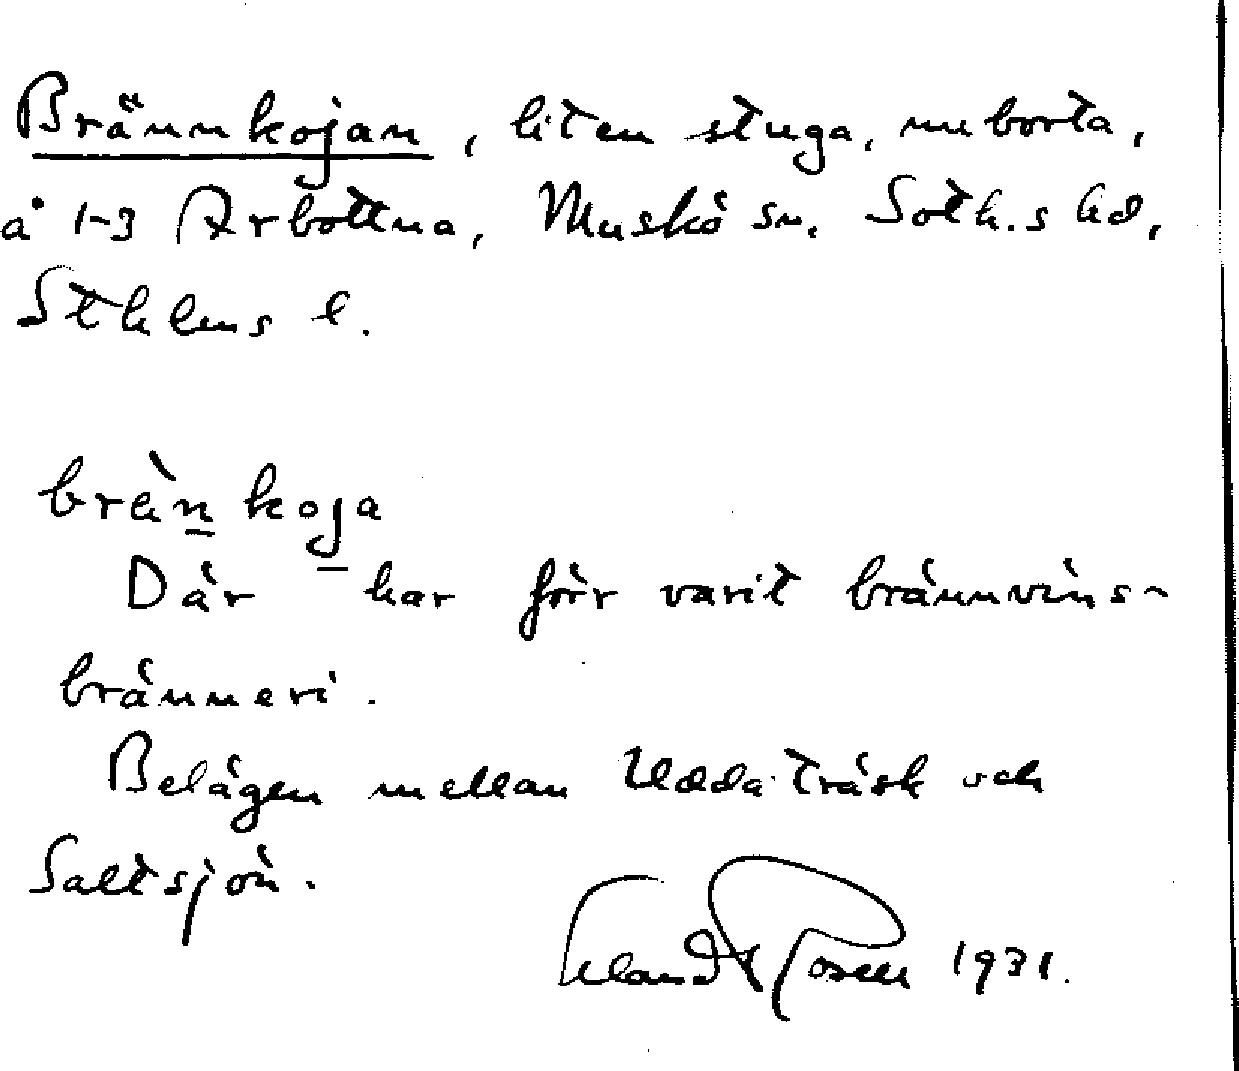 Brännkojan, liten stuga, nu borta,
å 1-3 Arbottna, Muskö sn. Soth.s hd,
Sthlms l.
brä̀n koja
Där har förr varit brännvins-
bränneri.
Belägen mellan Udda träsk och
Saltsjön.
Erland Rosell 1931.